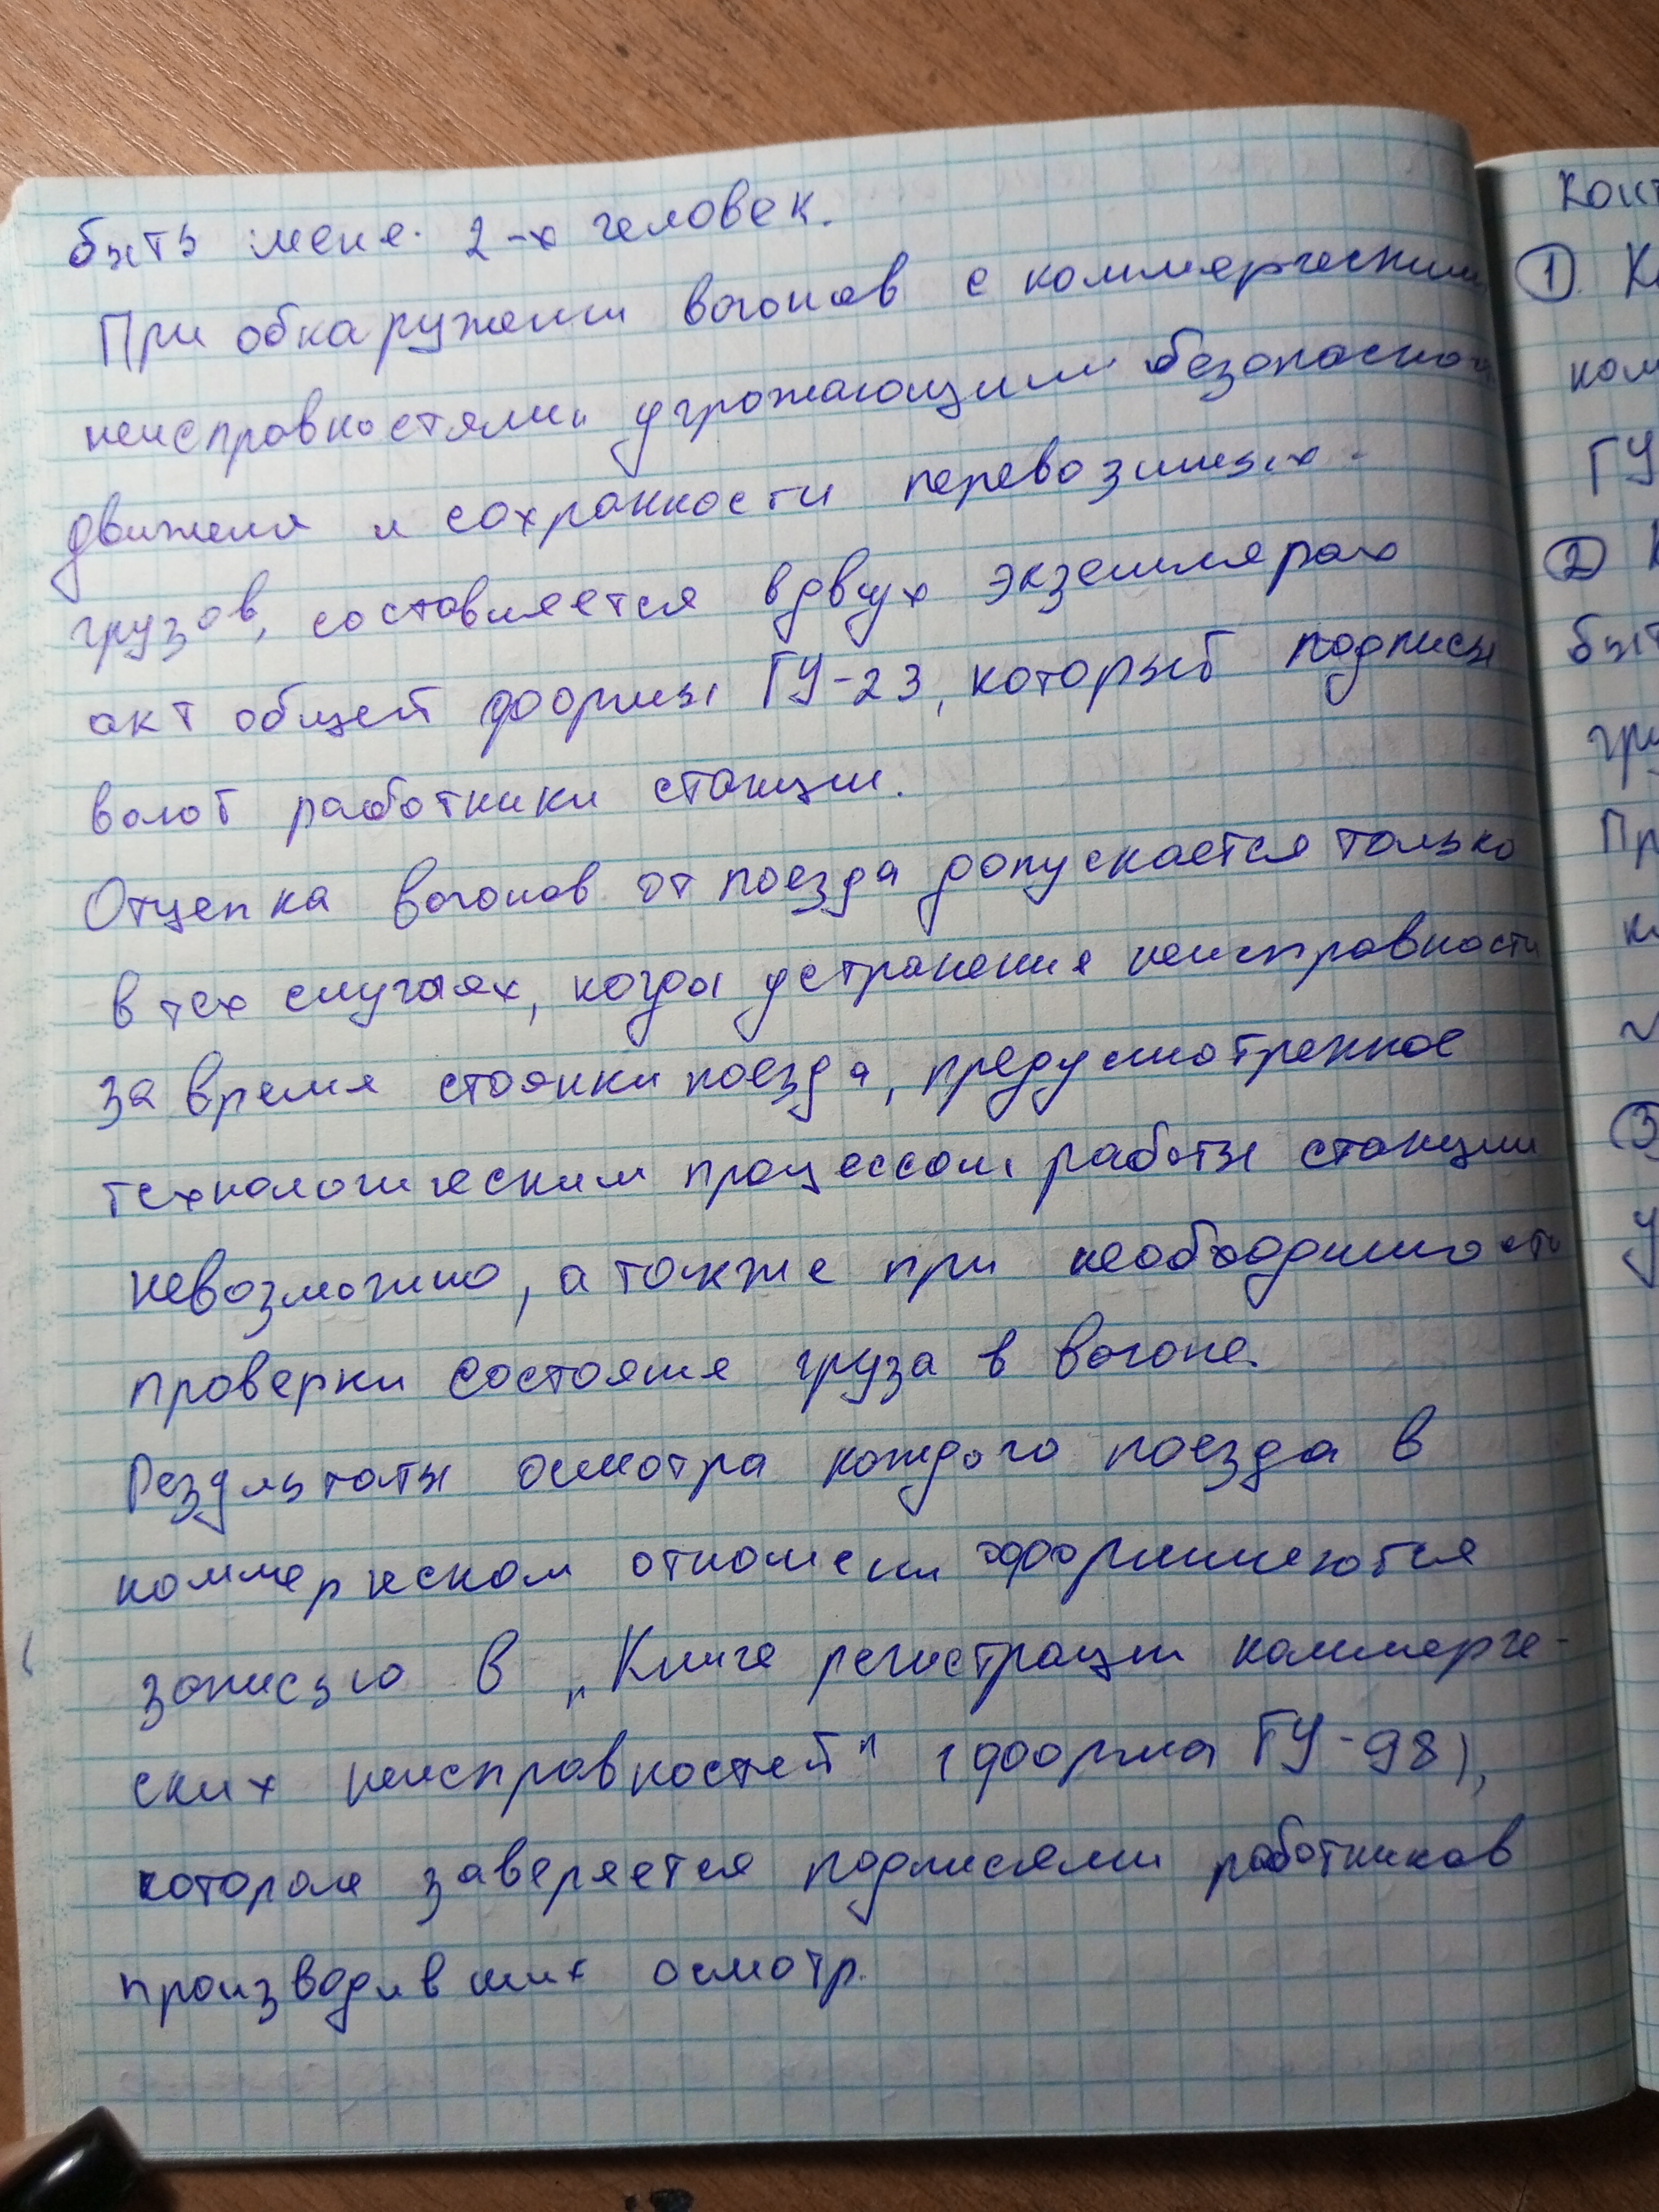 быть мене. 2-х человек.
При обнаружении вагонов с коммерческими
неисправностями угрожающими безопасности
движеня и сохранности перевозимых
грузов, составляется в двух экземплярах
акт общей формы ГУ-23, который подписы
вают работники станции.
Отцепка вагонов от поезда допускается только
в тех случаях, когда устранения неисправности
за время стоянки поезда, предусмотренное
технологическим процессом работы станции
невозможно, а также при необходимости
проверки состояния груза в вагоне.
Результаты осмотра каждого поезда в
коммерческом отношении оформляются
записью в „Книге регистрации коммерче-
ских неисправностей" (форма ГУ-98),
которая заверяется подписями работников
производивших осмотр.
①
ГУ
②
Пр
③